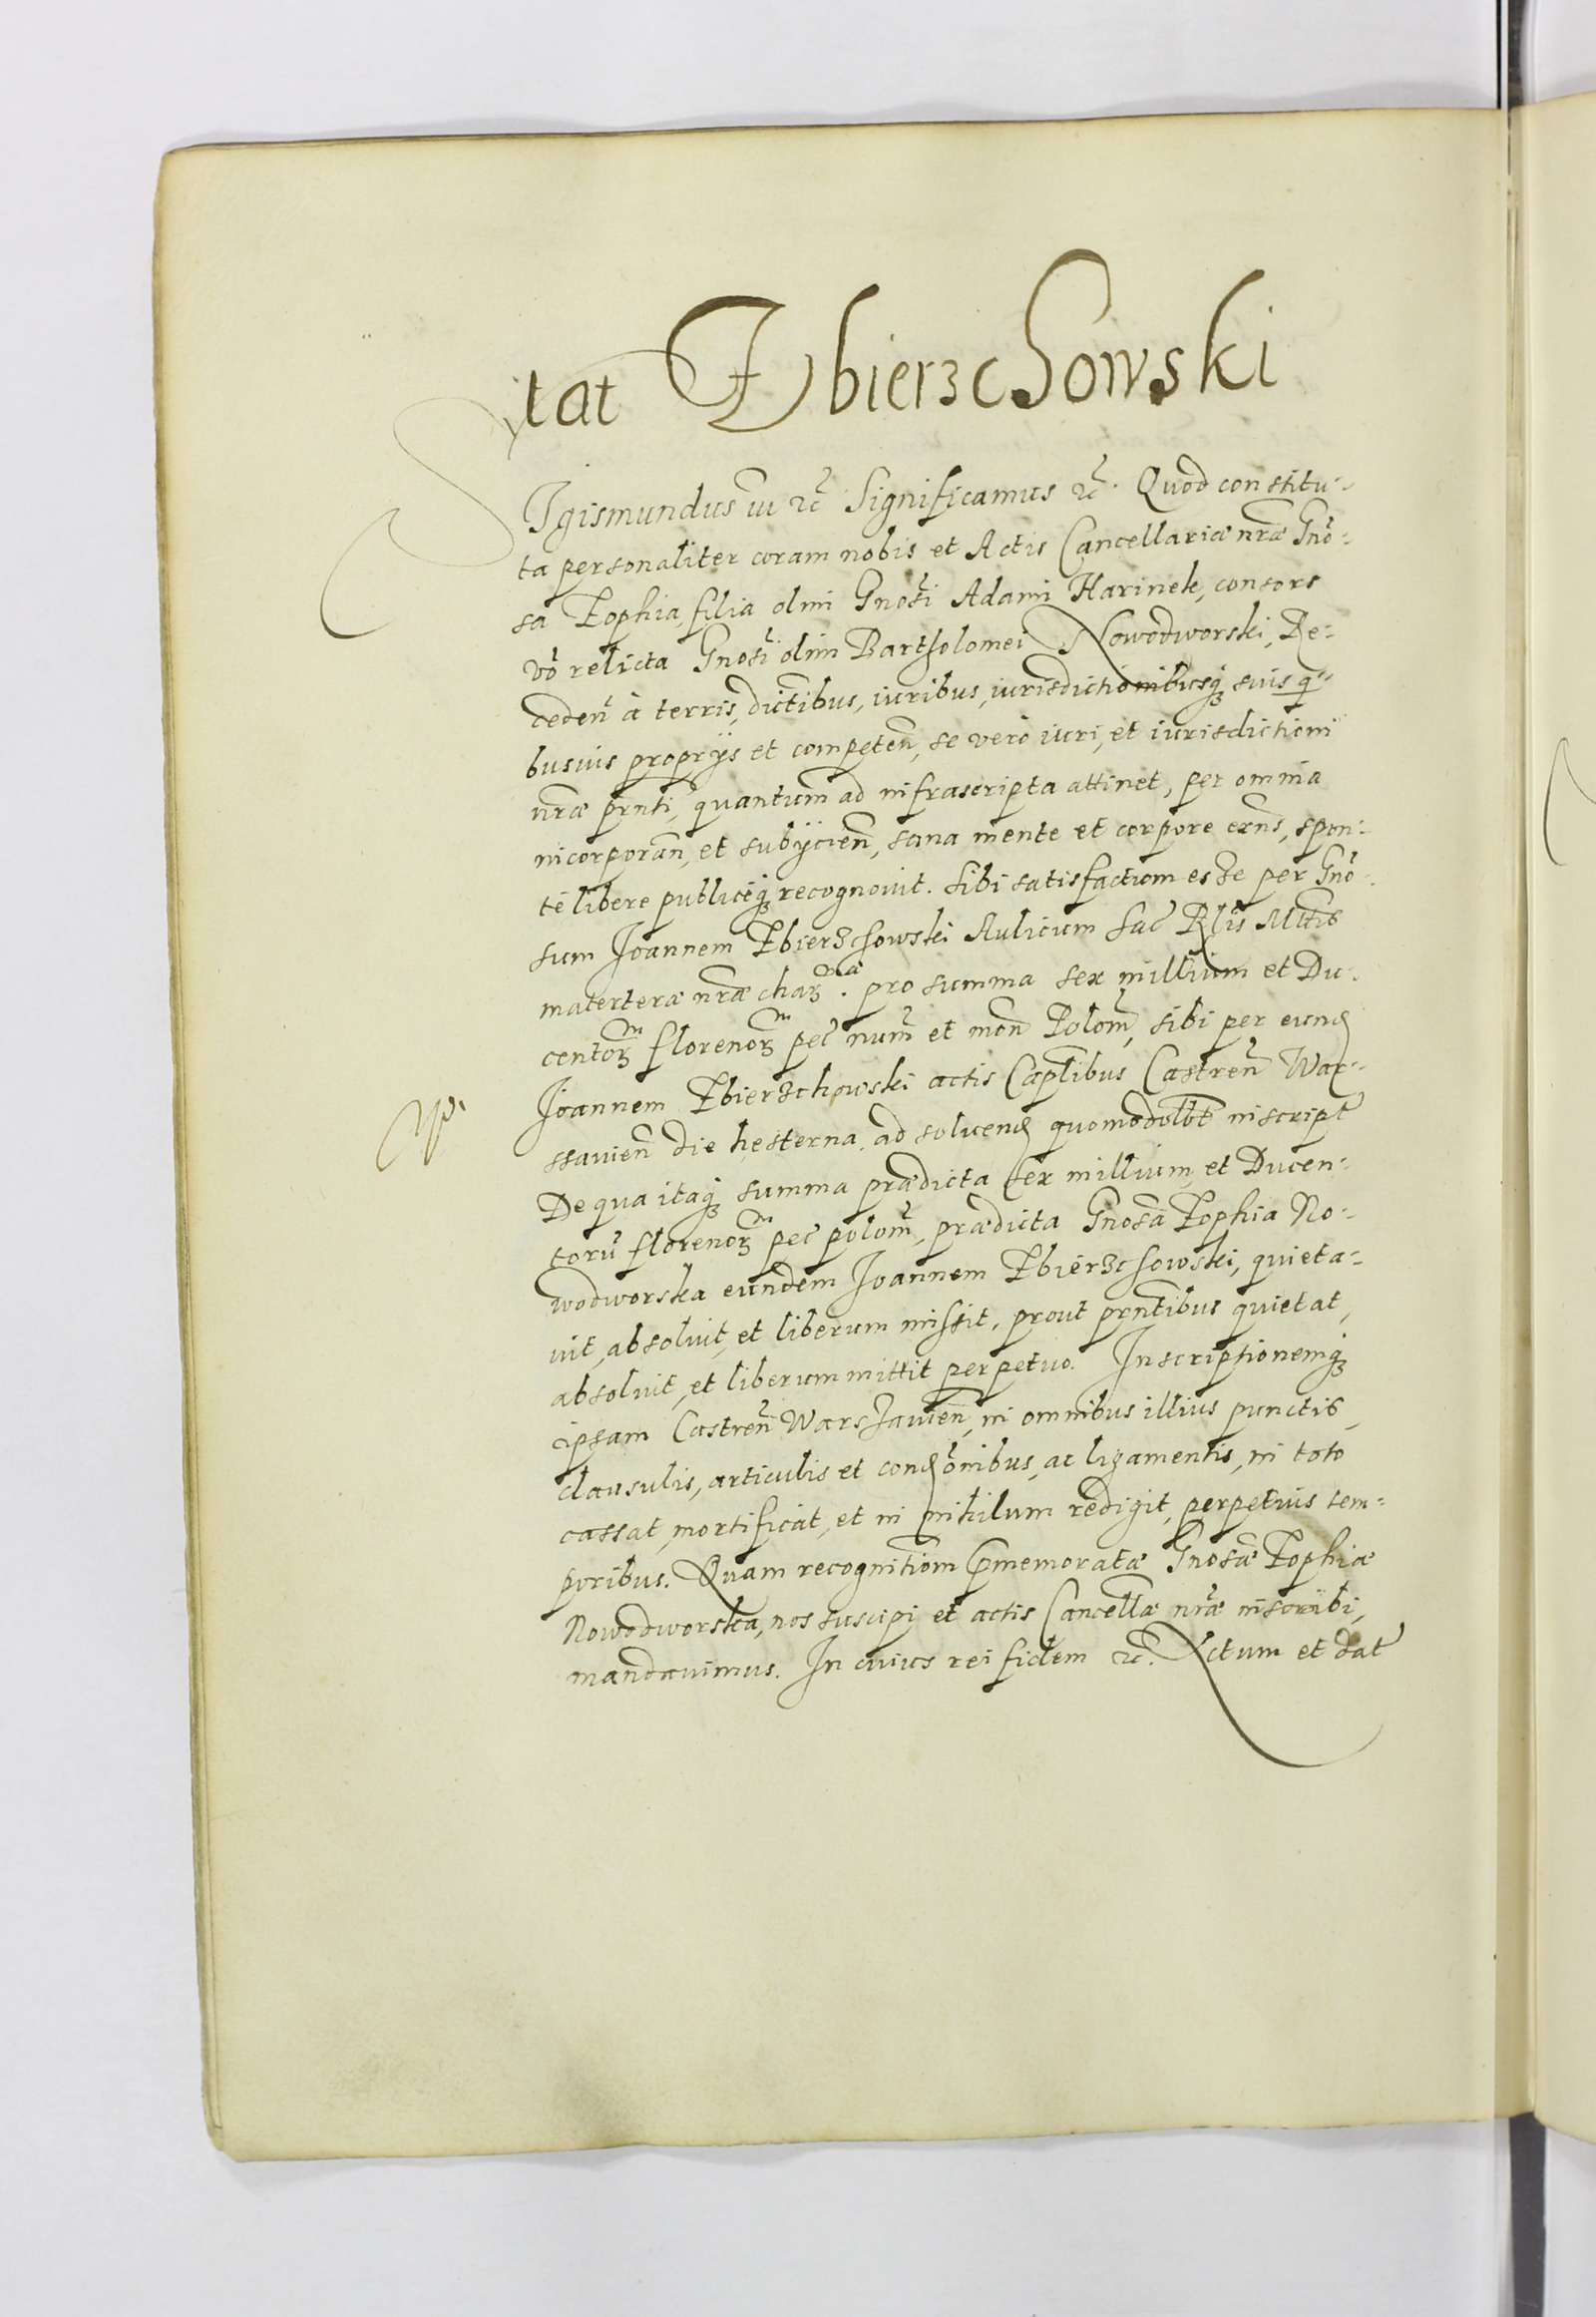 tat Zbierzchowski
SIgismundus III etc̄ Significamus etc̄. Quod constitu-
ta personaliter coram nobis et Actis Cancellariæ nr̄æ Gnō-
sa Zophia, filia olim Gnosi Adami Harinek, consors
vō relicta Gnosi olim Bartholomei Nowodworski, Re-
ceden̄ à terris, dictibus, iuribus, iurisdictionibusq; suis qi-
busuis proprijs et competen̄, se verò iuri, et iurisdictioni
nr̄æ prnti, quantum ad infrascripta attinet, per omnia
incorporan̄, et subijcien̄, sana mente et corpore exns, spon-
te libere publiceq; recognouit. Sibi satisfactum esse per Gnō-
sum Joannem Zbierzchowski Aulicum Sac̄ Rl̄is Mtt̄is
materteræ nr̄æ char: mæ. pro summa sex millium et Du-
centor: m florenor: m pec̄ num̄ et mon̄ Polon̄, sibi per eund
Joannem Zbierzchowski actis Cap̄tlibus Castren̄ War-
ssauien̄ die hesterna, ad soluend quomodolbt inscript
De qua itaq; summa prædicta sex millium, et Ducen-
torū florenor: m pec̄ polon̄, prædicta Gnosa Zophia No-
wodworska eundem Joannem Zbierzchowski, quieta-
uit, absoluit, et liberum missit, prout prntibus quietat,
absoluit, et liberum mittit perpetuo. Inscriptionemq;
ipsam Castren̄ Warszauien̄, in omnibus illius punctis,
clausulis, articulis et condōnibus, ac ligamentis, in toto
cassat, mortificat, et in nihilum redigit, perpetuis tem-
poribus. Quam recognitiom̄ præmemoratæ Gnosæ Zophiæ
Nowodworska, nos suscipi et actis Cancellæ nr̄æ inscribi,
mandauimus. In cuius rei fidem etc̄. Actum et dat